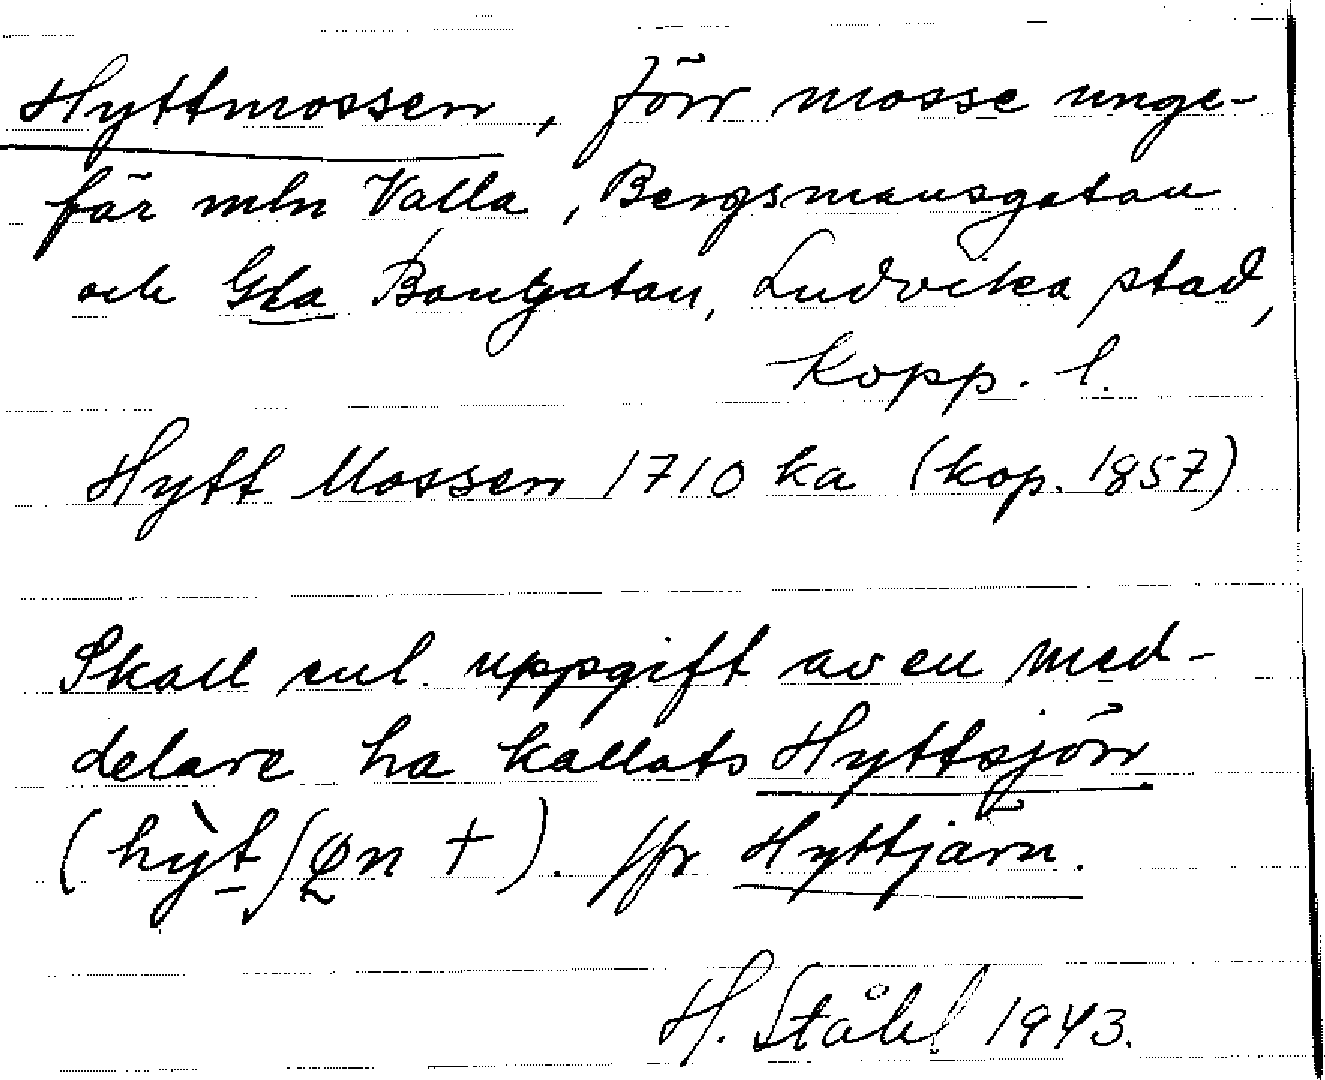 Hyttmossen, förr mosse unge-
fär mln Valla, Bergsmansgatan
och Gla Bangatan, Ludvika stad,
Kopp. l.
Hytt Mossen 1710 ka (kop. 1857)
Skall enl. uppgift av en med-
delare ha kallats Hyttsjön
(hỳt̲ʃφn †). Jfr Hyttjärn.
H. Ståhl 1943.